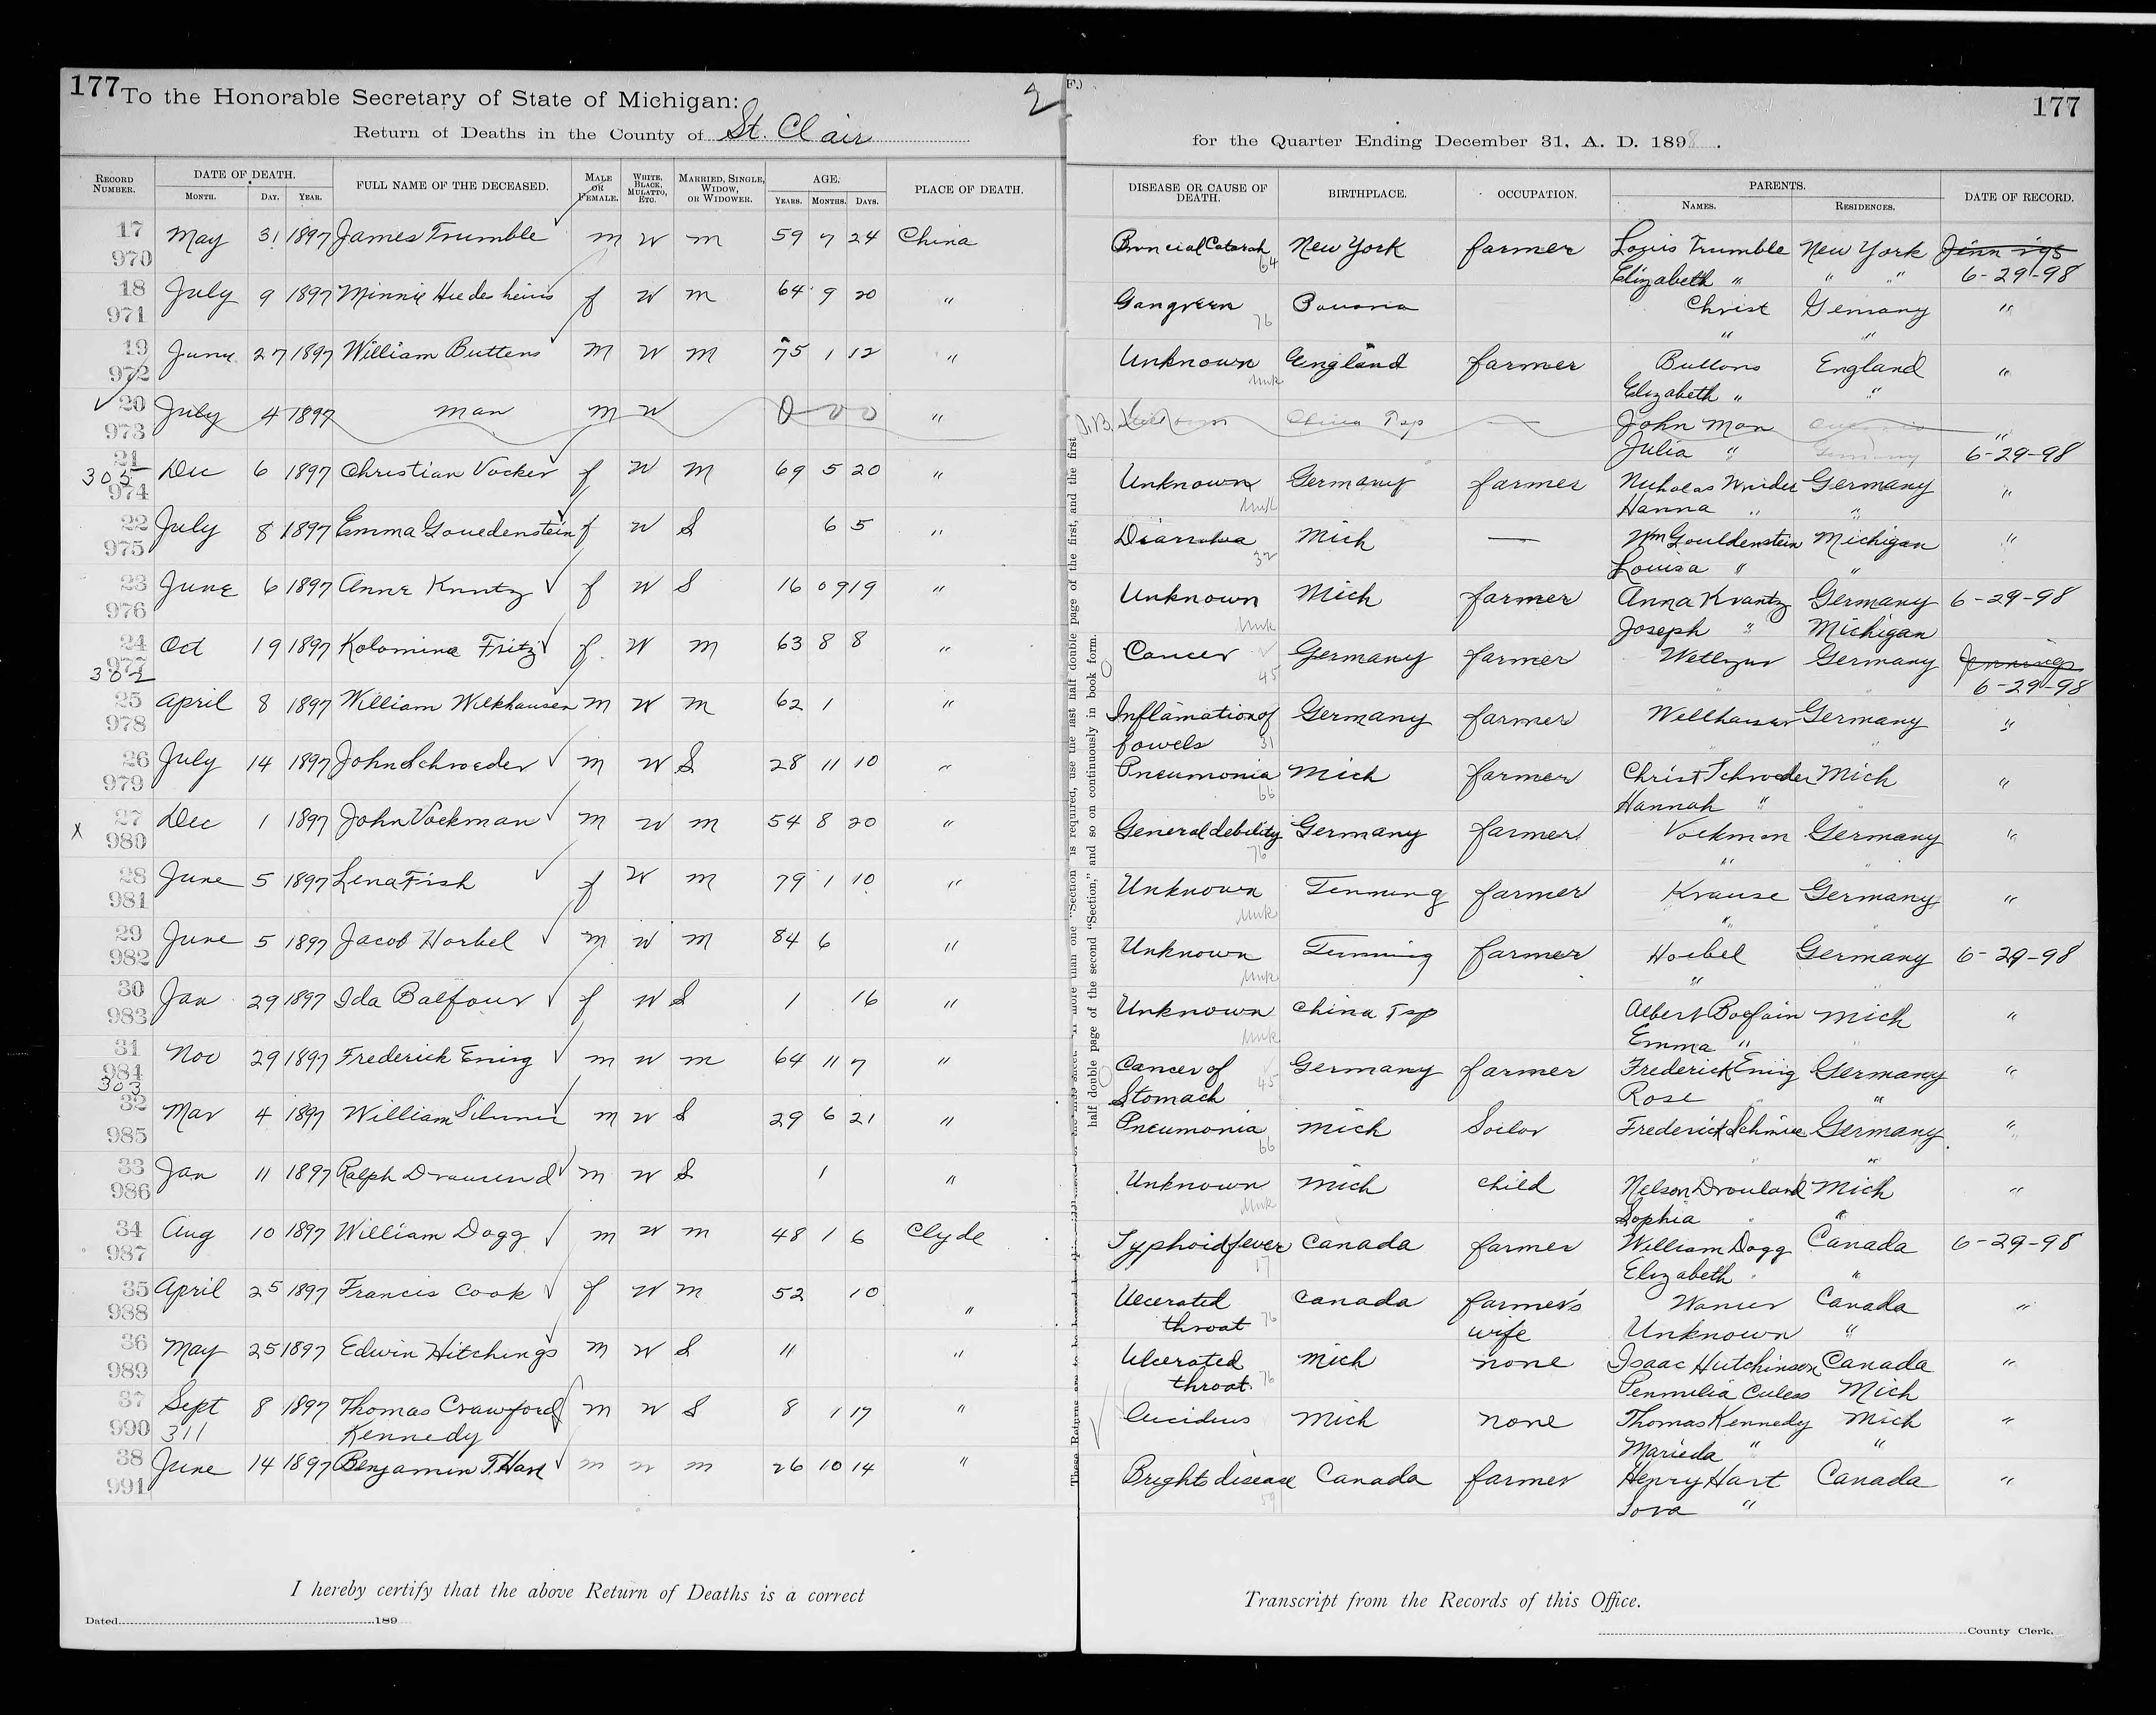 177
To the Honorable Secretary of State of Michigan:
2
Return of Deaths in the County of St. Clair
F.)
177
for the Quarter Ending December 31, A. D. 189 .
RECORD NUMBER. DATE OF DEATH. MONTH. DAY. YEAR. FULL NAME OF THE DECEASED. MALE OR FEMALE. WHITE, BLACK, MULATTO, ETC. MARRIED, SINGLE, WIDOW, OR WIDOWER. AGE. YEARS. MONTHS. DAYS. PLACE OF DEATH. DISEASE OR CAUSE OF DEATH. BIRTHPLACE. OCCUPATION. PARENTS. NAMES. RESIDENCES. DATE OF RECORD.
17 970 May 31 1897 James Trumble m W m 59 7 24 China 64 New York farmer Louis Trumble New York
Elizabeth " " " 6-29-98
18 971 July 9 1897 Minnie f W m 64 9 20 " Gangreen 76 Christ Gemany "
" "
19 972 June 27 1897 William Buttens m W m 75 1 12 " Unknown Unk England farmer Buttons England "
Elizabeth " "
20 973 July 4 1897 man m W 0 0 0 " China Tsp — John Man "
Julia " Germany 6-29-98
21 305 974 Dec 6 1897 Christian Vocker f W M 69 5 20 " Unknown Unk Germany farmer Nicholas Germany "
Hanna " "
22 975 July 8 1897 Emma Gouedenstein f W S 6 5 " Diarrohea 32 Mich — Wm Gouldenstein Michigan "
Louisa " "
23 976 June 6 1897 Anne Kruntz f W S 16 09 19 " Unknown Unk Mich farmer Anna Krantz Germany 6-29-98
Joseph " Michigan
24 977 302 Oct 19 1897 Kolomina Fritz f. W m 63 8 8 " Cancer 45 Germany farmer Germany Jennings
6-29-98
25 978 April 8 1897 William Welkhausen m W m 62 1 " Inflamation of Germany farmer Wellhauser Germany "
bowels 31
26 979 July 14 1897 John Schroeder m W S 28 11 10 " Pneumonia 66 Mich farmer Christ Schroder Mich "
Hannah "
27 980 x Dec 1 1897 John Vockman m W m 54 8 20 " General debility 76 Germany farmer Vockman Germany "
"
28 981 June 5 1897 Lena Fish f W m 79 1 10 " Unknown Unk farmer Krause Germany "
"
29 982 June 5 1897 Jacob Horbel m W m 84 6 " Unknown Unk farmer Hoebel Germany 6-29-98
"
30 983 Jan 29 1897 Ida Balfour f W S 1 16 " Unknown Unk China Tsp Albert Mich "
Emma "
31 984 303 Nov 29 1897 Frederick Emig m W m 64 11 7 " Cancer of 45 Germany farmer Frederick Emig Germany "
Stomach Rose "
32 985 Mar 4 1897 William m W S 29 6 21 " Pneumonia 66 Mich Sailor Frederick Germany "
"
33 986 Jan 11 1897 Ralph m W S 1 " Unknown Unk Mich child Nelson Drouland Mich "
Sophia " "
34 987 Aug 10 1897 William Dogg m W m 48 1 6 Clyde Typhoid fever 17 Canada farmer William Dogg Canada 6-29-98
Elizabeth " "
35 988 April 25 1897 Francis Cook f W m 52 10 " Ulcerated Canada farmer's Canada "
throat 76 wife Unknown "
36 989 May 25 1897 Edwin Hitchings m W S 11 " Ulcerated Mich none Isaac Hutchinson Canada "
throat 76 Mich
37 990 Sept 8 1897 Thomas Crawford m W S 8 1 17 " Mich none Thomas Kennedy Mich "
311 Kennedy Marieda " "
38 991 June 14 1897 Benjamin T. Hart m W m 26 10 14 " Brights disease 59 Canada farmer Henry Hart Canada "
"
half double page of the second "Section," and so on continuously in book form.
I hereby certify that the above Return of Deaths is a correct
Transcript from the Records of this Office.
Dated 189
County Clerk.